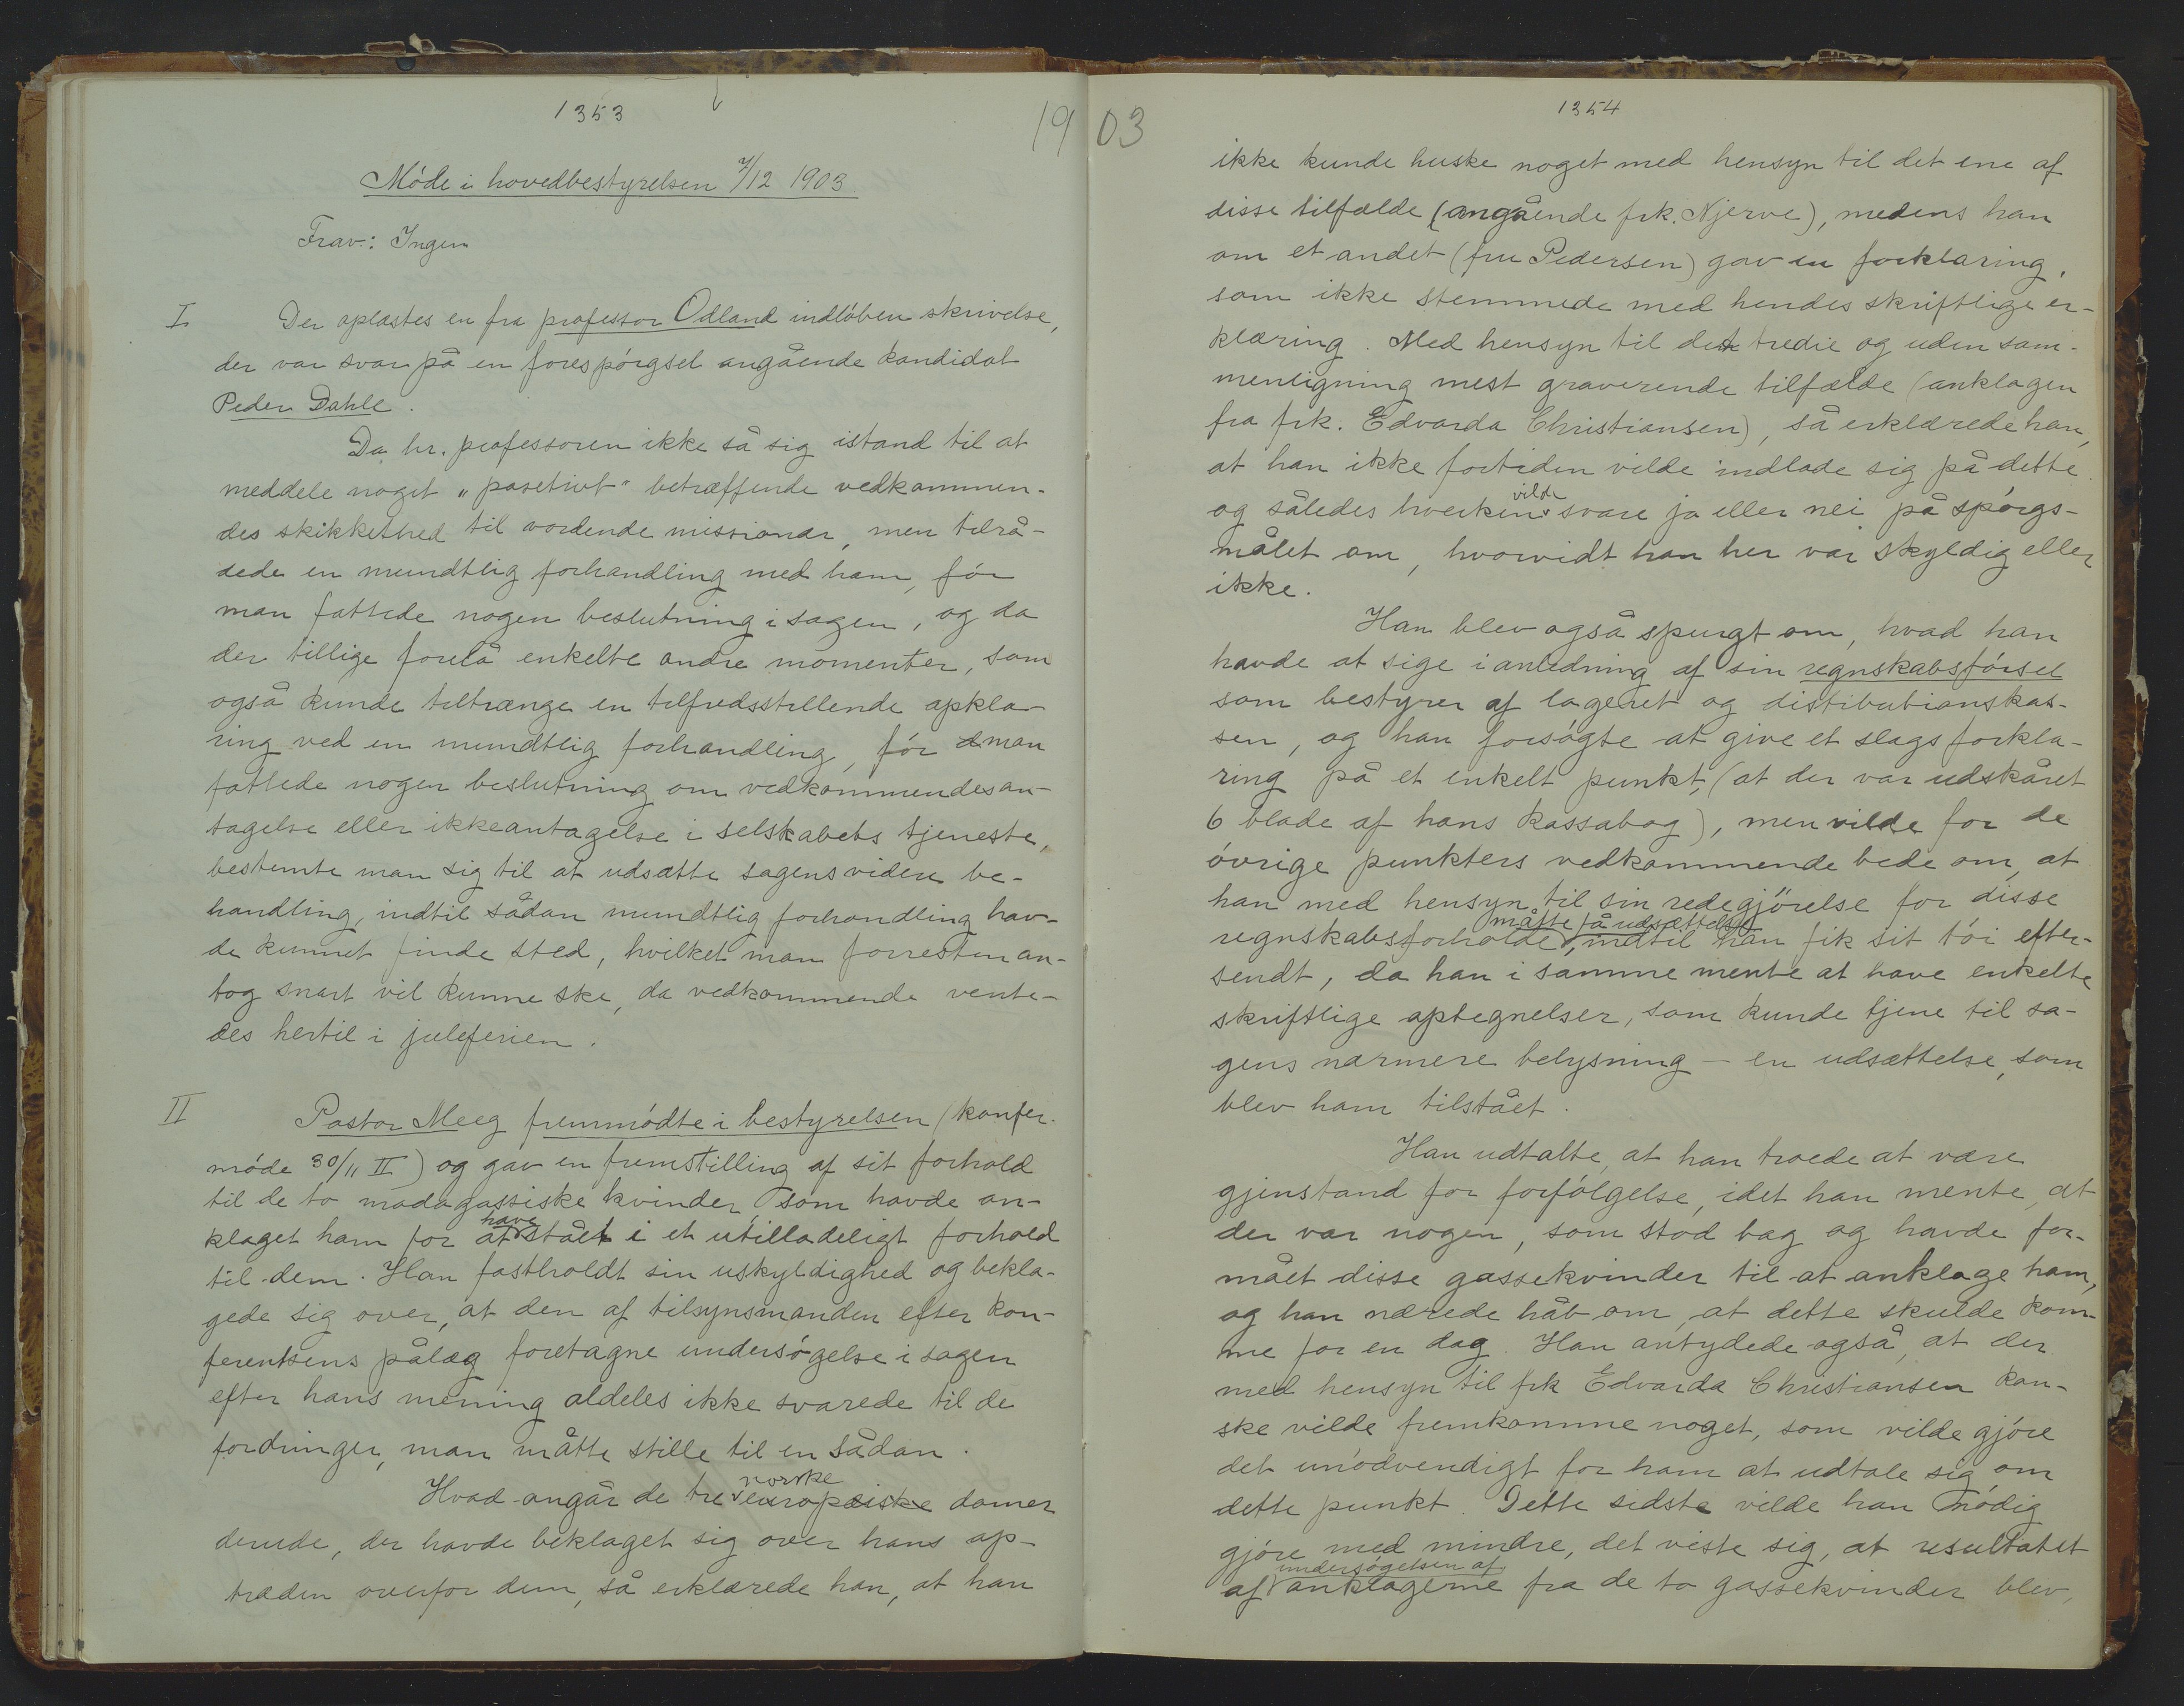 1353
1903
Møde i hovedbestyrelsen 7/12 1903
Frav: Ingen
I Der oplæstes en fra professor Odland indløben skrivelse,
der var svar på en forespørgsel angående kandidat
Peder Dahle.
Da hr. professoren ikke så sig istand til at
meddele noget "posetivt" betræffende vedkommen-
des skikkethed til vordende missionær, men tilrå-
dede en mundtlig forhandling med ham, før
man fattede nogen beslutning i sagen, og da
der tillige forelå enkelte andre momenter, som
også kunde tiltrænge en tilfredsstillende opkla-
ring ved en mundtlig forhandling, før man
fattede nogen beslutning om vedkommendes an-
tagelse eller ikkeantagelse i selskabets tjeneste,
bestemte man sig til at udsætte sagens videre be-
handling, indtil sådan mundtlig forhandling hav-
de kunnet finde sted, hvilket man forresten an-
tog snart vil kunne ske, da vedkommende vente-
des hertil i juleferien.
II Pastor Meeg fremmødte i bestyrelsen (konfer.
møde 30/11 II) og gav en fremstilling af sit forhold
til de to madagassiske kvinder, som havde an-
klaget ham for at have stået i et utilladeligt forhold
til dem. Han fastholdt sin uskyldighed og bekla-
gede sig over, at den af tilsynsmanden efter kon-
ferentsens pålæg foretagne undersøgelse i sagen
efter hans mening aldeles ikke svarede til de
fordringer, man måtte stille til en sådan.
Hvad angår de tre norske europæiske damer
derude, der havde beklaget sig over hans op-
træden overfor dem, så erklærede han, at han
1354
ikke kunde huske noget med hensyn til det ene af
disse tilfælde (angående frk. Njerve), medens han
om et andet (fru Pedersen) gav en forklaring,
som ikke stemmede med hendes skriftlige er-
klæring. Med hensyn til det tredie og uden sam-
menligning mest graverende tilfælde (anklagen
fra frk. Edvarda Christiansen), så erklærede han,
at han ikke fortiden vilde indlade sig på dette
og således hverken vilde svare ja eller nei på spørgs-
målet om, hvorvidt han her var skyldig eller
ikke.
Han blev også spurgt om, hvad han
havde at sige i anledning af sin regnskabsførsel
som bestyrer af lageret og distibutionskas-
sen, og han forsøgte at give et slags forkla-
ring på et enkelt punkt, (at der var udskåret
6 blade af hans kassabog), men vilde for de
øvrige punkters vedkommende bede om, at
han med hensyn til sin redegjørelse for disse
regnskabsforholde måtte få udsættelse, indtil han fik sit tøi efter-
sendt, da han i samme mente at have enkelte
skriftlige optegnelser, som kunde tjene til sa-
gens nærmere belysning – en udsættelse, som
blev ham tilstået.
Han udtalte, at han troede at være
gjenstand for forfølgelse, idet han mente, at
der var nogen, som stod bag og havde for-
mået disse gassekvinder til at anklage ham,
og han nærede håb om, at dette skulde kom-
me for en dag. Han antydede også, at der
med hensyn til frk Edvarda Christiansen kan-
ske vilde fremkomme noget, som vilde gjøre
det unødvendigt for ham at udtale sig om
dette punkt. Dette sidste vilde han nødig
gjøre med mindre, det viste sig, at resultatet
af undersøgelsen af anklagerne fra de to gassekvinder blev,